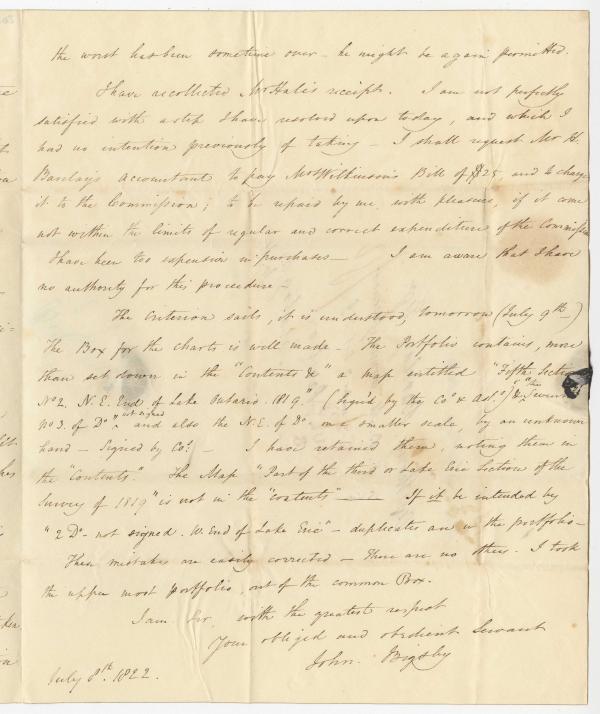 the worst has been sometime over – he might be again permitted.
I have recollected Mr Hale's receipts. I am not perfectly
satisfied with a step I have resolved upon today, and which I
had no intention previously of taking – I shall request Mr H.
Barclay's accountant to pay Mr Wilkinson's Bill of $25, and to charge
it to the Commission; to be repaid by me, with pleasure, if it come
not within the limits of regular and correct expenditure of the Commission
I have been too expensive in purchases – I am aware that I have
no authority for this procedure –
The Criterion sails, it is understood, tomorrow (July 9th –)
The Box for the charts is well made – The Portfolio contains, more
than set down in the "Contents &" a map intitled "Fifth Section
No 2. N.E. End of Lake Ontario 1819." (Sign'd by the Co's & Ast's) &
No 3. of Do " not signed and also the N.E. of Do on a smaller scale, by an unknown
hand – Signed by Co's – I have retained them, noting them in
the "Contents". The Map "Part of the third or Lake Erie Section of the
Survey of 1819" is not in the "contents" – If it be intended by
"2 Do – not signed. W. End of Lake Erie" – duplicates are in the portfolio –
These mistakes are easily corrected – There are no others. I took
the upper most portfolio, out of the common Box.
I am Sir, with the greatest respect
Your obliged and obedient Servant
John Bigsby
July 8th 1822.